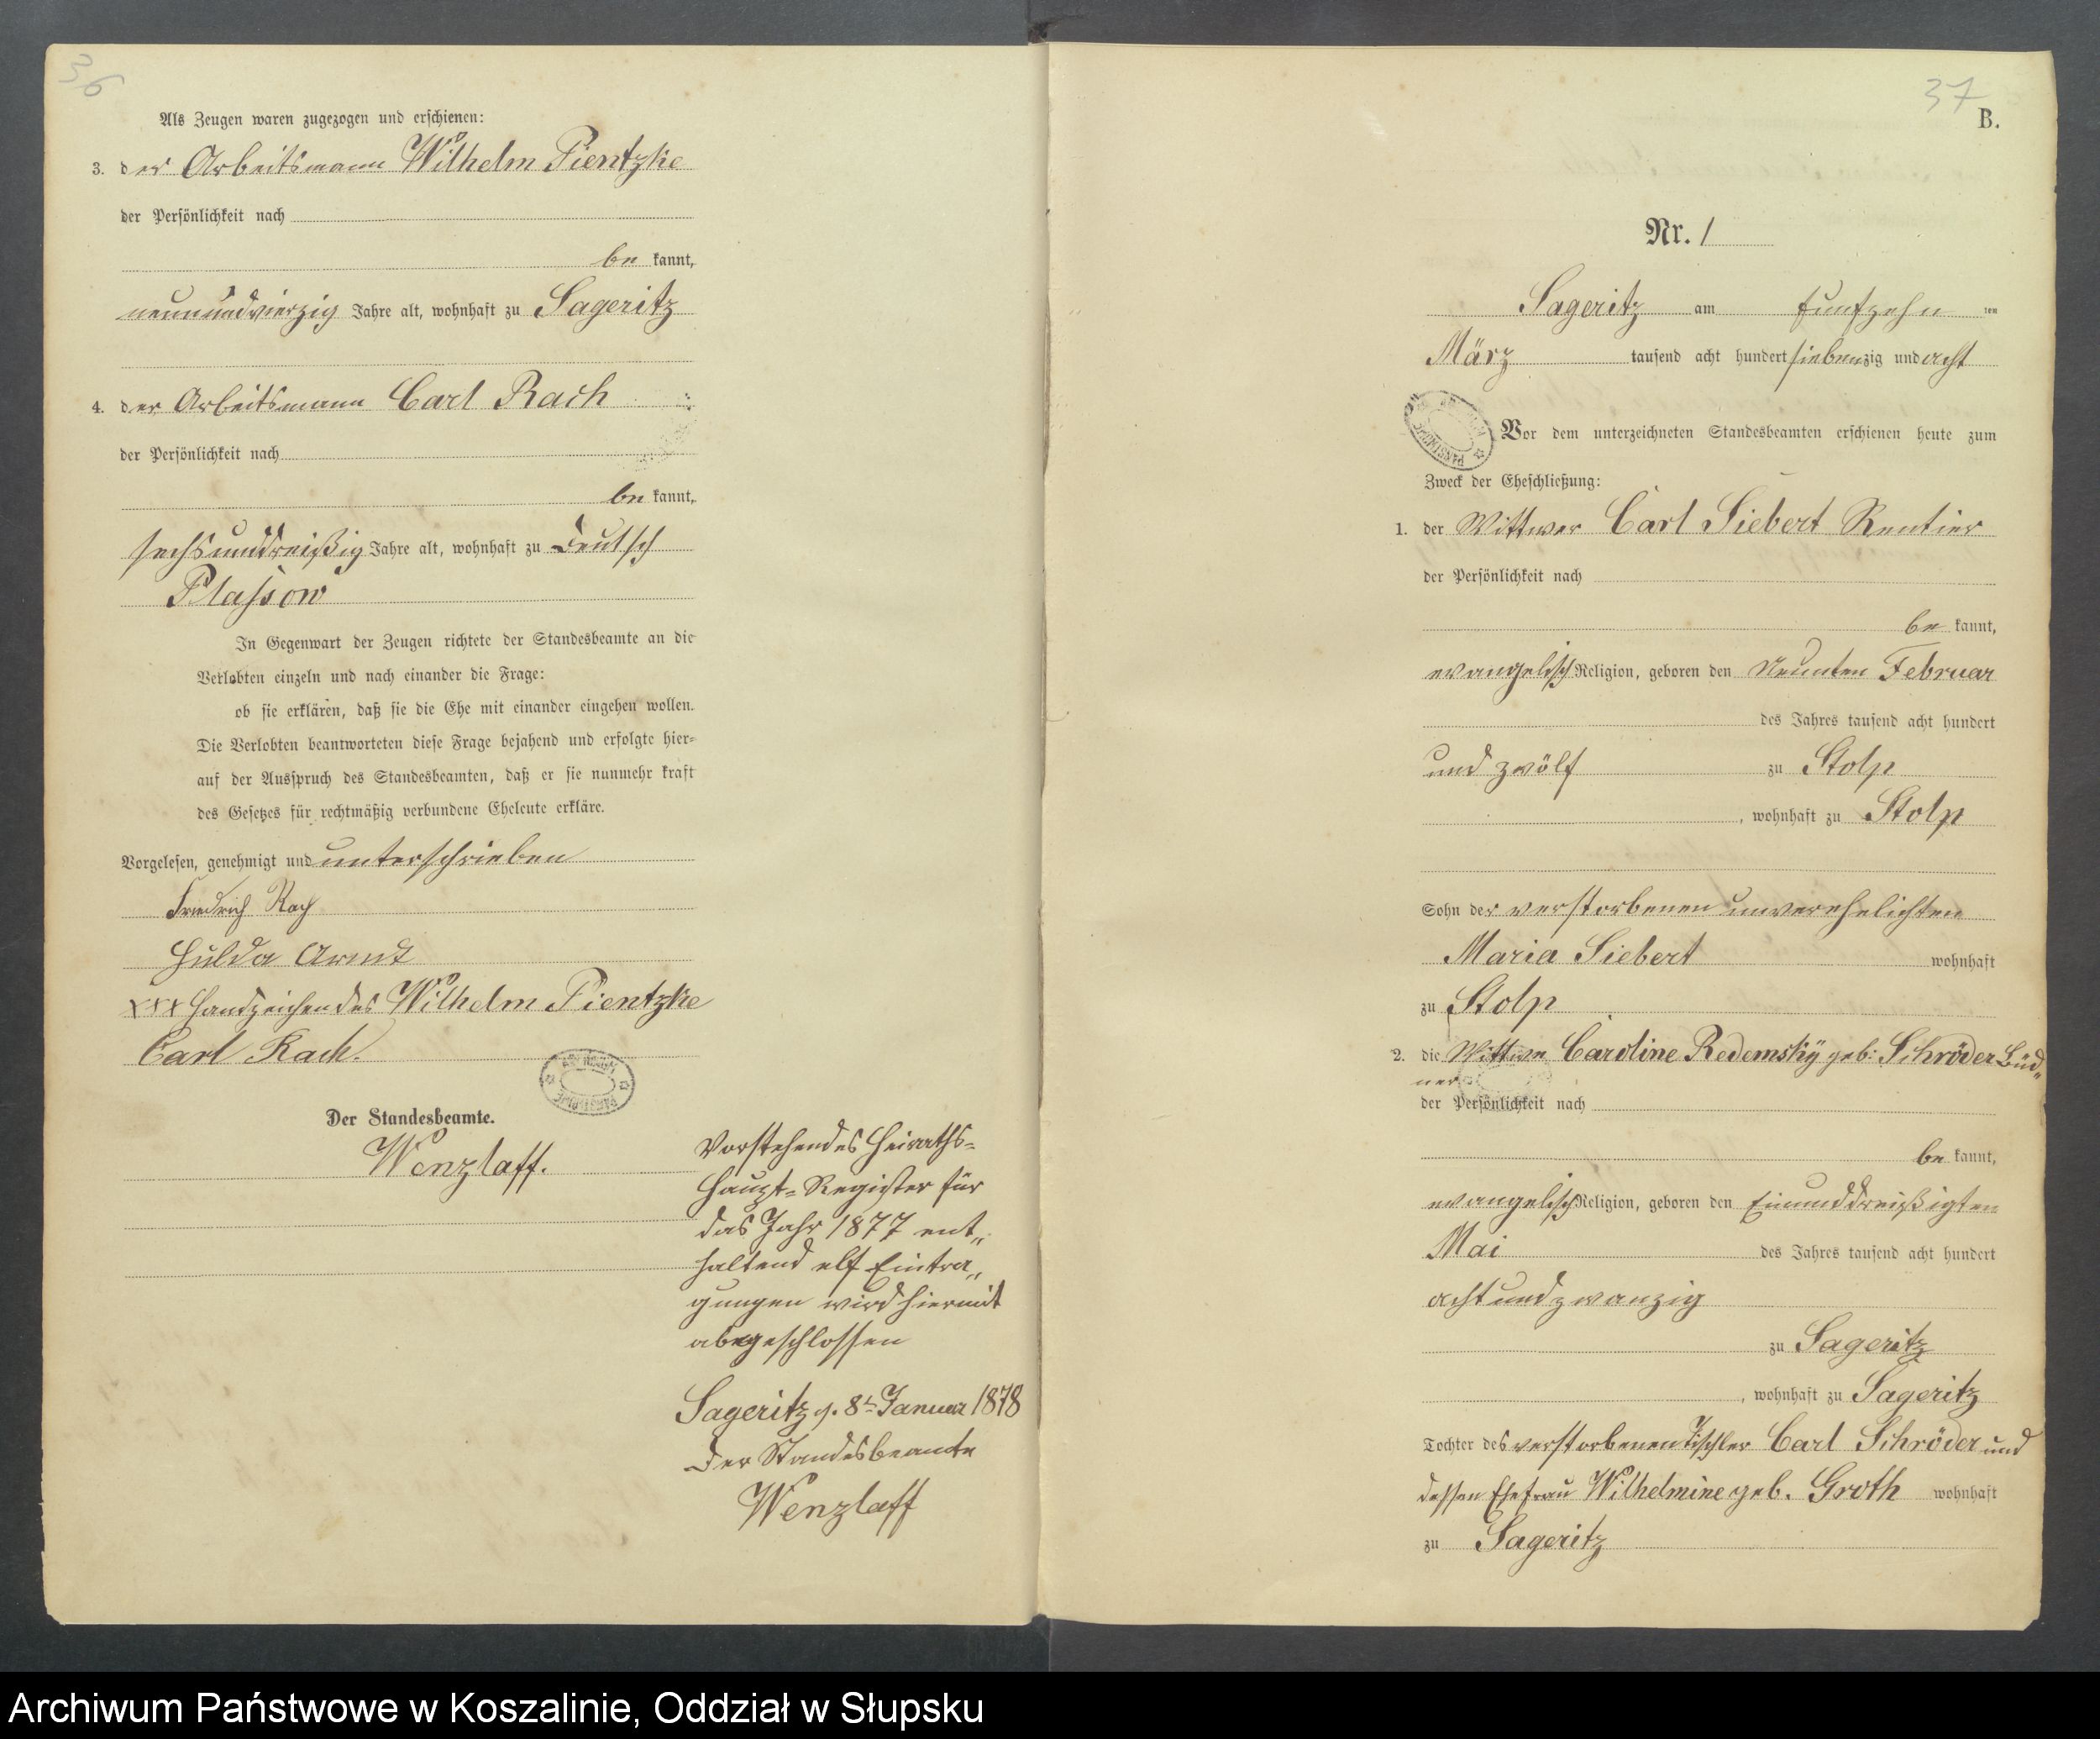 36
Als Zeugen waren zugezogen und erschienen:
3. der Arbeitsmann Wilhelm Pientzke
der Persönlichkeit nach
be kannt,
neunundvierzig Jahre alt, wohnhaft zu Sageritz
4. der Arbeitsmann Carl Rach
der Persönlichkeit nach
be kannt,
sechsunddreißig Jahre alt, wohnhaft zu Deutsch
Plassow
In Gegenwart der Zeugen richtete der Standesbeamte an die
Verlobten einzeln und nach einander die Frage:
ob sie erklären, daß sie die Ehe mit einander eingehen wollen.
Die Verlobten beantworteten diese Frage bejahend und erfolgte hier-
auf der Ausspruch des Standesbeamten, daß er sie nunmehr kraft
des Gesetzes für rechtmäßig verbundene Eheleute erkläre.
Vorgelesen, genehmigt und unterschrieben
Friedrich Rach
Hulda Arndt
XXX Handzeichen des Wilhelm Pientzke
Carl Rach.
Der Standesbeamte.
Wenzlaff.
Vorstehendes Heiraths-
Haupt-Register für
das Jahr 1877 ent-
haltend elf Eintra-
gungen wird hiermit
abgeschlossen
Sageritz d. 8t Januar 1878
Der Standesbeamte
Wenzlaff
37
B.
Nr. 1
Sageritz am fünfzehn ten
März tausend acht hundert siebenzig und acht
Vor dem unterzeichneten Standesbeamten erschienen heute zum
Zweck der Eheschließung:
1. der Wittwer Carl Siebert Rentier
der Persönlichkeit nach
be kannt,
evangelisch Religion, geboren den Neunten Februar
des Jahres tausend acht hundert
und zwölf zu Stolp
, wohnhaft zu Stolp
Sohn der verstorbenen unverehelichten
Maria Siebert wohnhaft
zu Stolp
2. die Wittwe Caroline Redemsky geb: Schröder Büd-
ner
der Persönlichkeit nach
be kannt,
evangelisch Religion, geboren den Einunddreißigten
Mai des Jahres tausend acht hundert
achtundzwanzig
zu Sageritz
, wohnhaft zu Sageritz
Tochter des verstorbenen Tischler Carl Schröder und
dessen Ehefrau Wilhelmine geb. Groth wohnhaft
zu Sageritz
Archiwum Państwowe w Koszalinie, Oddział w Słupsku